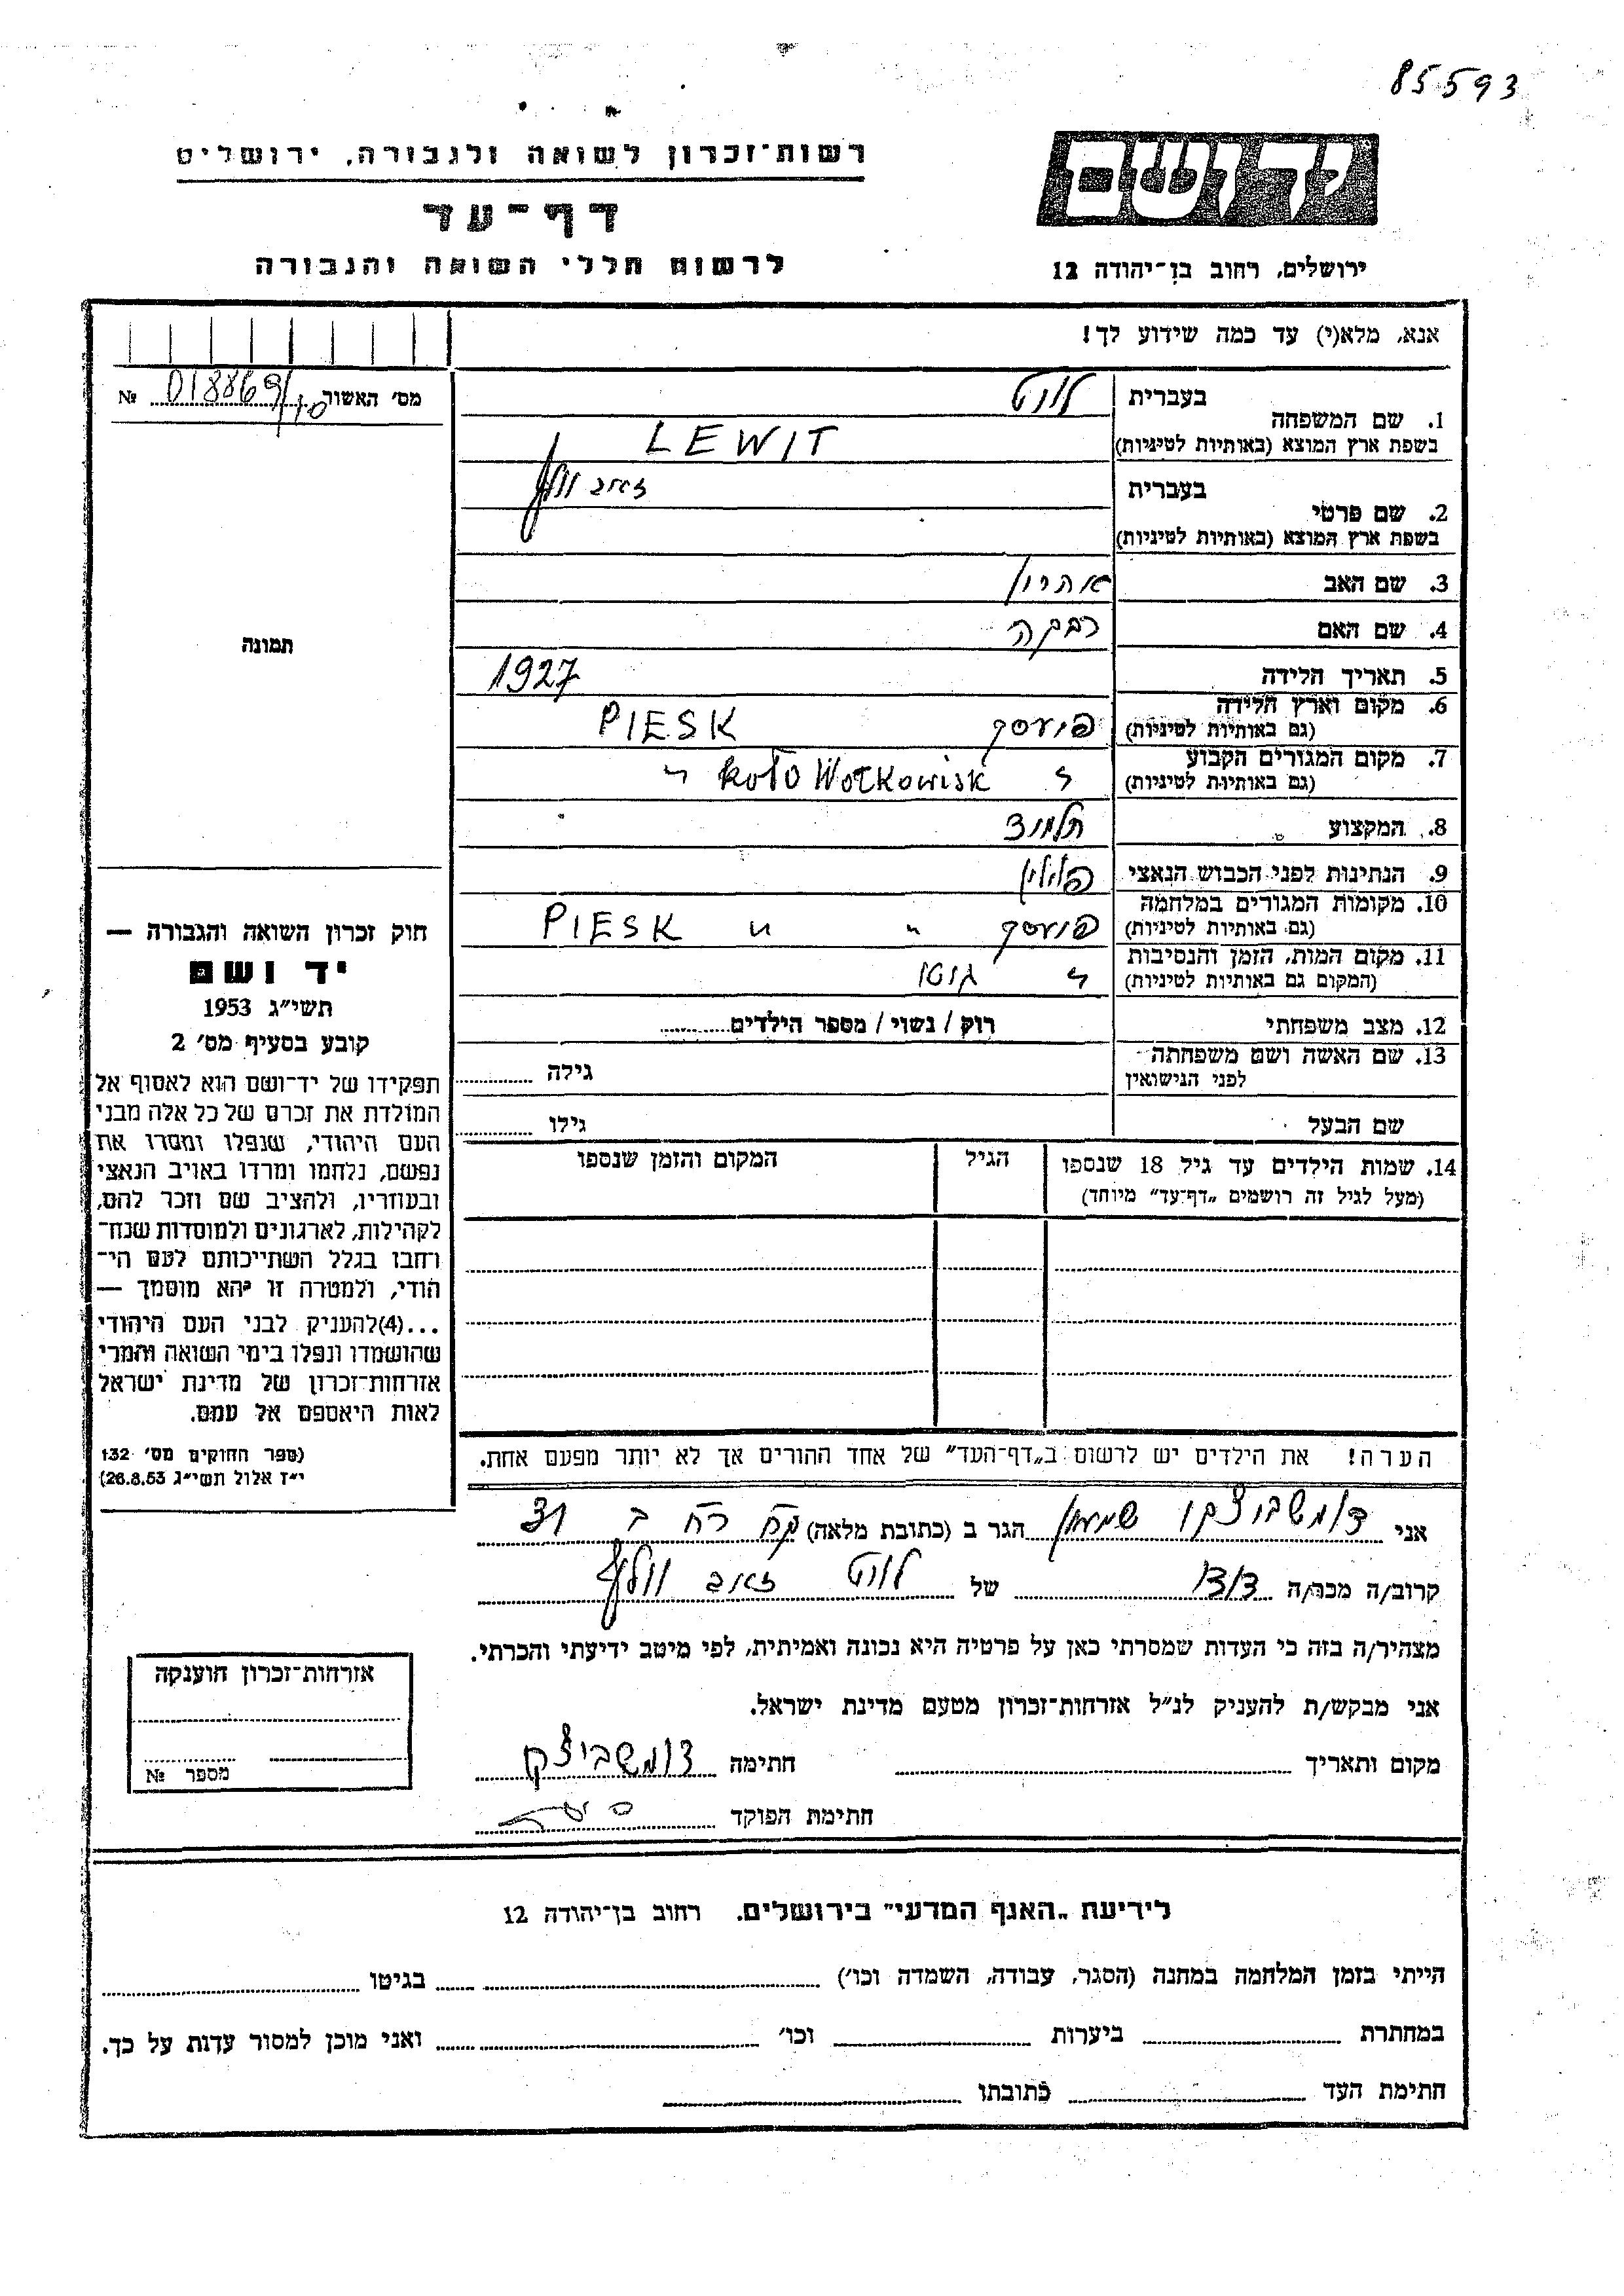 85593
רשות־זכרון לשואה ולגבורה, ירושלים
יד ושם
דף־עד
לרשום חללי השואה והגבורה
ירושלים, רחוב בן־יהודה 12
אנא, מלא(י) עד כמה שידוע לך!
מס׳ האשור 018869/110 №
1. שם המשפחה בעברית לויט
בשפת ארץ המוצא (באותיות לטיניות) LEWIT
2. שם פרטי בעברית זאב וולף
בשפת ארץ המוצא (באותיות לטיניות)
3. שם האב אהרון
4. שם האם רבקה
תמונה
5. תאריך הלידה 1927
6. מקום וארץ הלידה
(גם באותיות לטיניות) פיעסק PIESK
7. מקום המגורים הקבוע
(גם באותיות לטיניות) " Koło Wołkowisk "
8. המקצוע תלמיד
9. הנתינות לפני הכבוש הנאצי פולין
10. מקומות המגורים במלחמה
(גם באותיות לטיניות) פיעסק " " PIESK
11. מקום המות, הזמן והנסיבות
(המקום גם באותיות לטיניות) " גיטו
12. מצב משפחתי רוק / נשוי / מספר הילדים
13. שם האשה ושם משפחתה
לפני הנישואין גילה
שם הבעל גילו
14. שמות הילדים עד גיל 18 שנספו הגיל המקום והזמן שנספו
(מעל לגיל זה רושמים „דף־עד” מיוחד)
חוק זכרון השואה והגבורה —
יד ושם
תשי״ג 1953
קובע בסעיף מס׳ 2
תפקידו של יד־ושם הוא לאסוף אל
המולדת את זכרם של כל אלה מבני
העם היהודי, שנפלו ומסרו את
נפשם, נלחמו ומרדו באויב הנאצי
ובעוזריו, ולהציב שם וזכר להם,
לקהילות, לארגונים ולמוסדות שנח־
רחבו בגלל השתייכותם לעם הי־
הודי, ולמטרה זו יהא מוסמך —
...(4)להעניק לבני העם היהודי
שהושמדו ונפלו בימי השואה והמרי
אזרחות־זכרון של מדינת ישראל
לאות היאספם אל עמם.
(ספר החוקים מס׳ 132
י״ז אלול תשי״ג 26.8.53)
הערה! את הילדים יש לרשום ב„דף־העד” של אחד ההורים אך לא יותר מפעם אחת.
אני שמעון הגר ב (כתובת מלאה) רח 31
קרוב/ה מכר/ה דוד של לויט זאב וולף
מצהיר/ה בזה כי העדות שמסרתי כאן על פרטיה היא נכונה ואמיתית, לפי מיטב ידיעתי והכרתי.
אני מבקש/ת להעניק לנ״ל אזרחות־זכרון מטעם מדינת ישראל.
מקום ותאריך חתימה
חתימת הפוקד
אזרחות־זכרון הוענקה
מספר №
לידיעת „האגף המדעי” בירושלים. רחוב בן־יהודה 12
הייתי בזמן המלחמה במחנה (הסגר, עבודה, השמדה וכו׳) בגיטו
במחתרת ביערות וכו׳ ואני מוכן למסור עדות על כך.
חתימת העד כתובתו